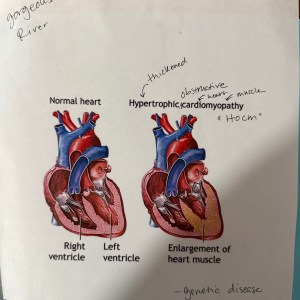 gorgeous
River
thickened
obstructive
heart muscle
Normal heart
Hypertrophic cardiomyopathy
"HOCM"
Right ventricle
Left ventricle
Enlargement of heart muscle
- genetic disease